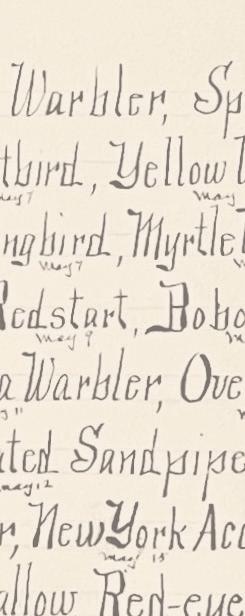 Warbler, Sp
tbird, Yellow
May 7 May
ngbird, Myrtle
May 7
Redstart, Bobo
May 9
a Warbler, Ove
11
ted Sandpipe
May 12
r, New York Acc
May 15
allow Red-eye